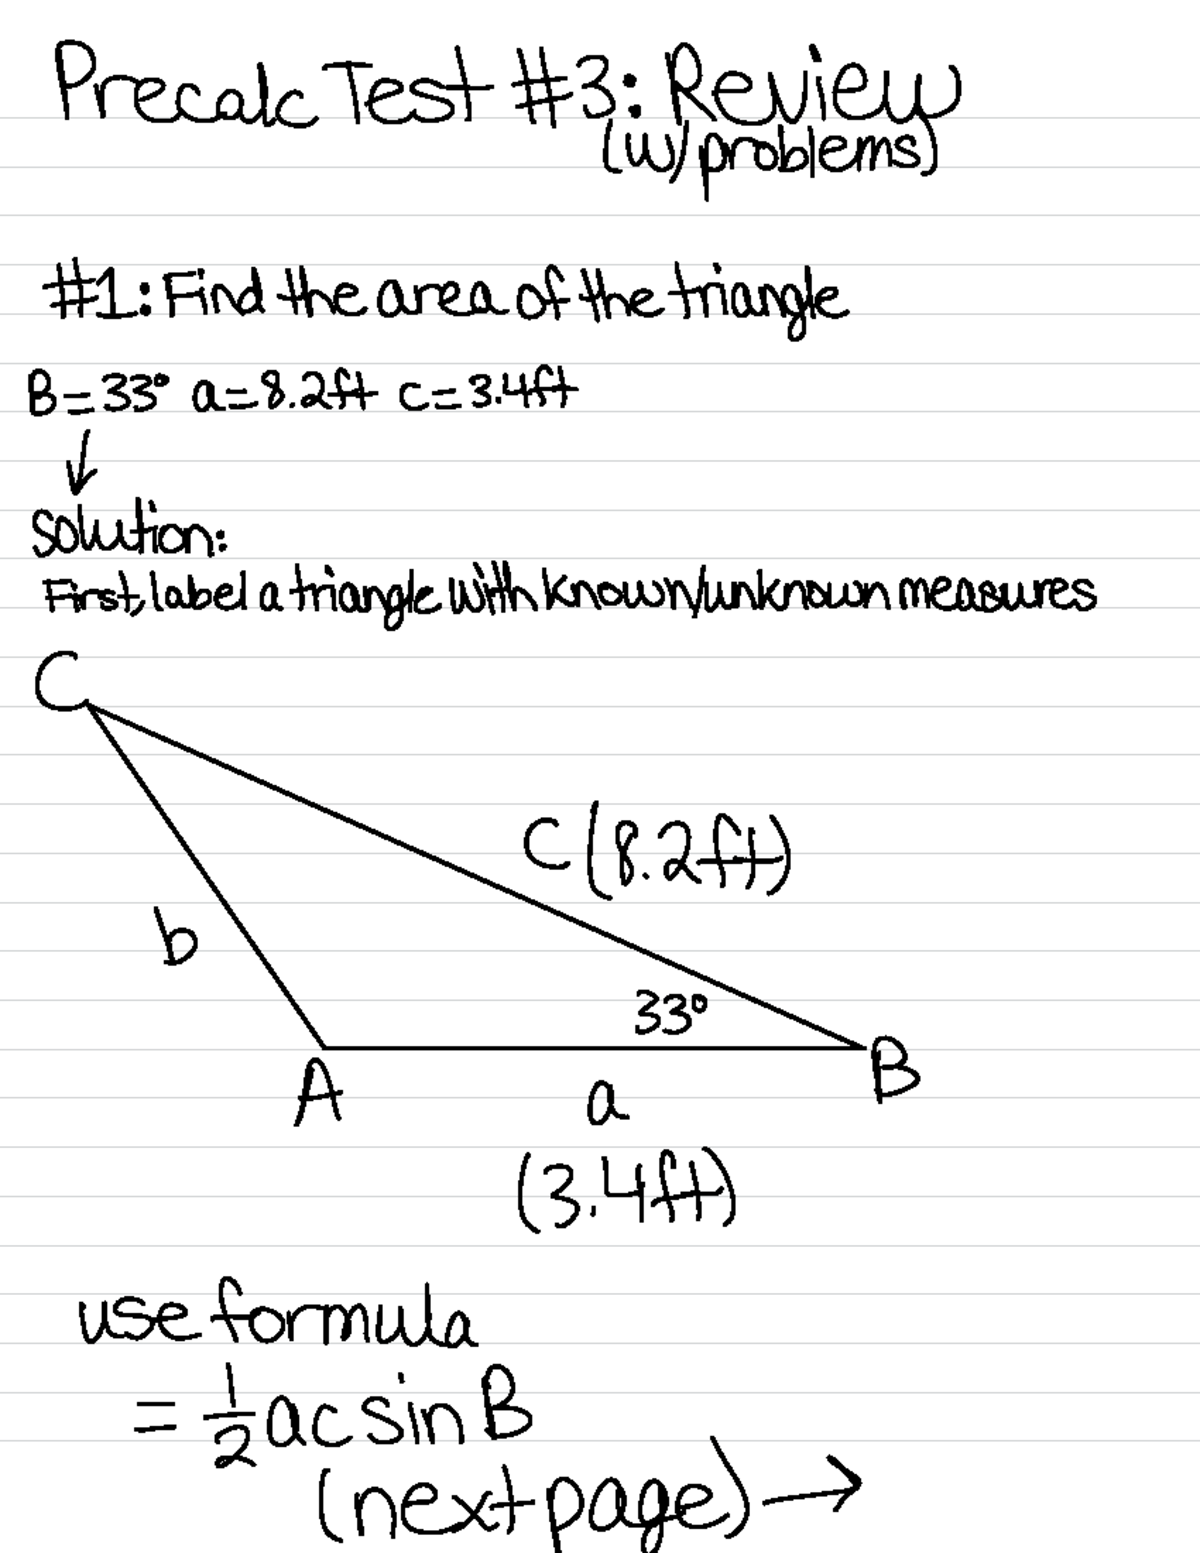 Precalc Test #3: Review
(w/problems)
#1: Find the area of the triangle
B=33° a=8.2ft c=3.4ft
Solution:
First, label a triangle with known/unknown measures
C
C (8.2ft)
b
33°
A
B
a
(3.4ft)
use formula
= 1/2 ac sin B
(next page) →